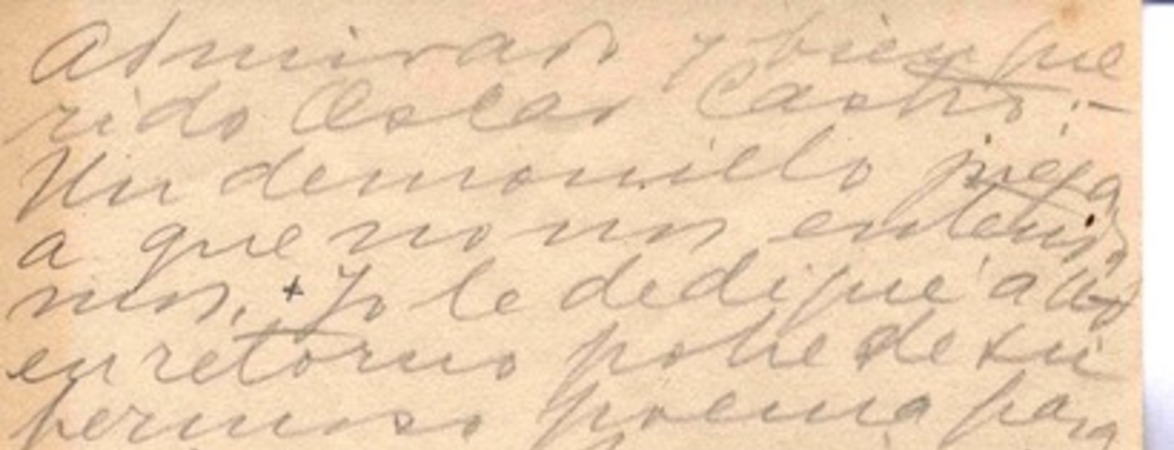 Admirado y bien que
rido Oscar Castro:-
Un demonillo juega
a que no nos entenda
mos. + Yo le dediqué a Ud
en retorno pobre de su
hermoso poema para